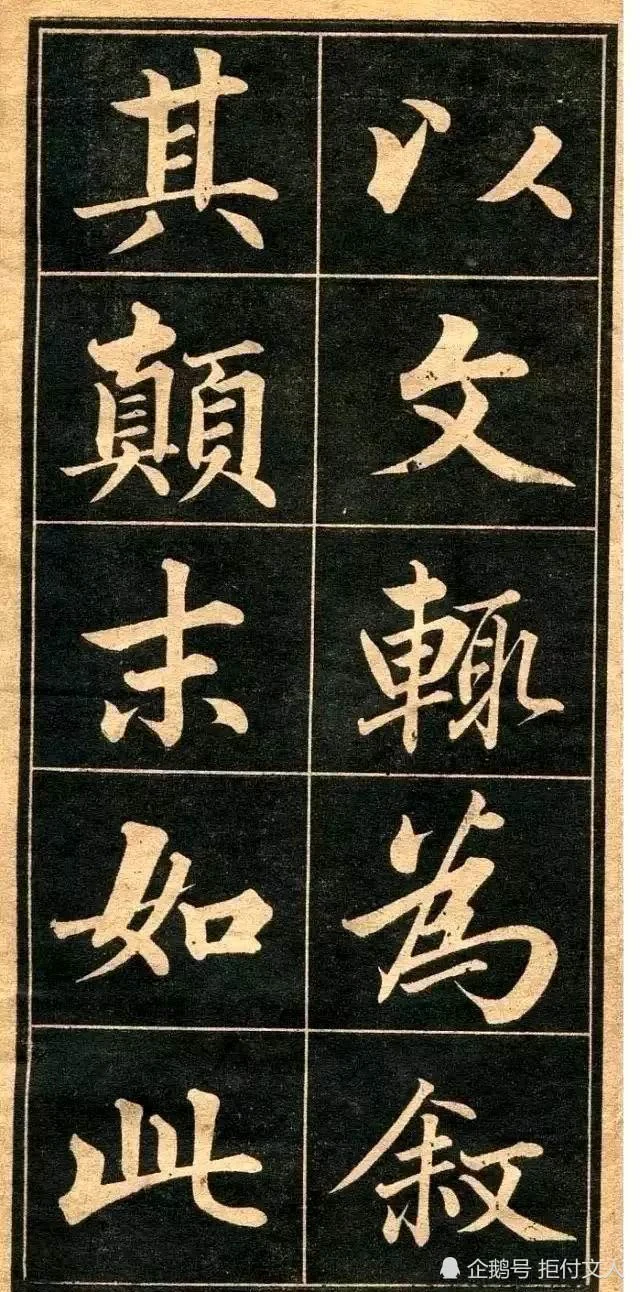 以文輙為叙
其顛末如此
企鹅号 拒付文人